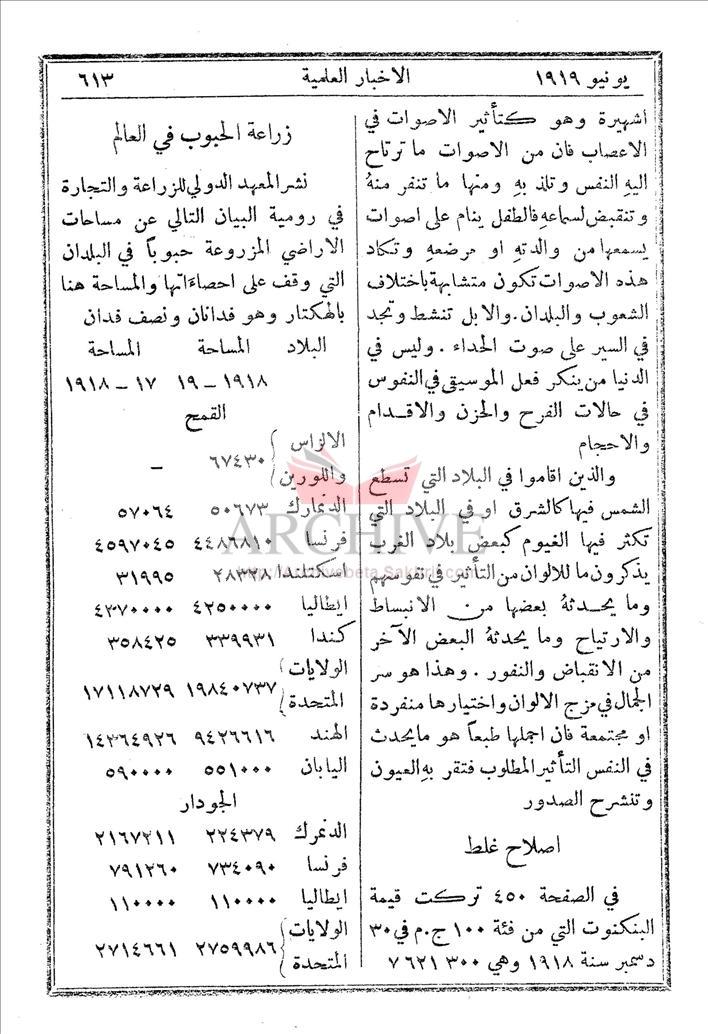 يونيو ١٩١٩ الاخبار العلمية ٦١٣
اشهيرة وهو كتأثير الاصوات في
الاعصاب فان من الاصوات ما ترتاح
اليهِ النفس وتلذ بهِ ومنها ما تنفر منهُ
وتنقبض لسماعهِ فالطفل ينام على اصوات
يسمعها من والدتهِ او مرضعهِ وتكاد
هذه الاصوات تكون متشابهة باختلاف
الشعوب والبلدان. والابل تنشط وتجد
في السير على صوت الحداء . وليس في
الدنيا من ينكر فعل الموسيقى في النفوس
في حالات الفرح والحزن والاقدام
والاحجام
والذين اقاموا في البلاد التي تسطع
الشمس فيها كالشرق او في البلاد التي
تكثر فيها الغيوم كبعض بلاد الغرب
يذكرون ما للالوان من التأثير في نفوسهم
وما يحدثهُ بعضها من الانبساط
والارتياح وما يحدثهُ البعض الآخر
من الانقباض والنفور . وهذا هو سر
الجمال في مزج الالوان واختيارها منفردة
او مجتمعة فان اجملها طبعاً هو ما يحدث
في النفس التأثير المطلوب فتقر بهِ العيون
وتنشرح الصدور
اصلاح غلط
في الصفحة ٤٥٠ تركت قيمة
البنكنوت التي من فئة ١٠٠ ج.م في ٣٠
دسمبر سنة ١٩١٨ وهي ٣٠٠ ٧٦٢١
زراعة الحبوب في العالم
نشر المعهد الدولي للزراعة والتجارة
في رومية البيان التالي عن مساحات
الاراضي المزروعة حبوباً في البلدان
التي وقف على احصاءاتها والمساحة هنا
بالهكتار وهو فدانان ونصف فدان
البلاد المساحة المساحة
١٩١٨ – ١٩ ١٧ – ١٩١٨
القمح
الالزاس
واللورين ٦٧٤٣٠ –
الدنمارك ٥٠٦٧٣ ٥٧٠٦٤
فرنسا ٤٤٨٦٨١٠ ٤٥٩٧٠٤٥
اسكتلندا ٢٨٣٢٨ ٣١٩٩٥
ايطاليا ٤٢٥٠٠٠٠ ٤٣٧٠٠٠٠
كندا ٣٣٩٩٣١ ٣٥٨٤٢٥
الولايات
المتحدة ١٩٨٤٠٧٣٧ ١٧١١٨٧٢٩
الهند ٩٤٢٦٦١٦ ١٤٣٦٤٩٢٦
اليابان ٥٥١٠٠٠ ٥٩٠٠٠٠
الجودار
الدنمرك ٢٢٤٣٧٩ ٢١٦٧٢١١
فرنسا ٧٣٤٠٩٠ ٧٩١٢٦٠
ايطاليا ١١٠٠٠٠ ١١٠٠٠٠
الولايات
المتحدة ٢٧٥٩٩٨٦ ٢٧١٤٦٦١
ARCHIVE